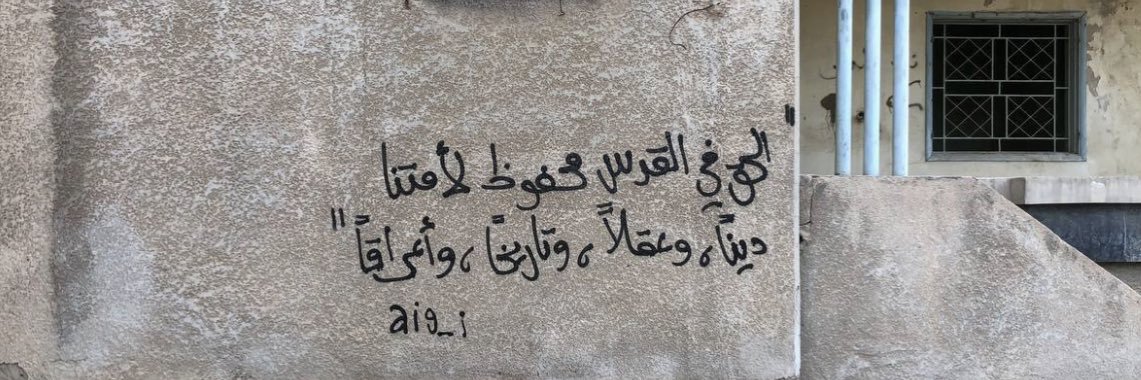 "الحق في القدس محفوظ لأمتنا
ديناً، وعقلاً، وتاريخاً، وأعراقاً"
aig_i